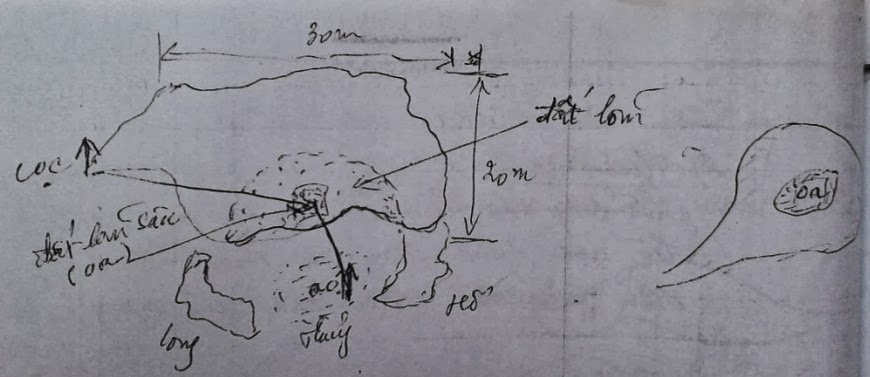 30m
đất lõm
cọc
20m
oa
đất lõm sâu
(oa)
ao
long
Thủy